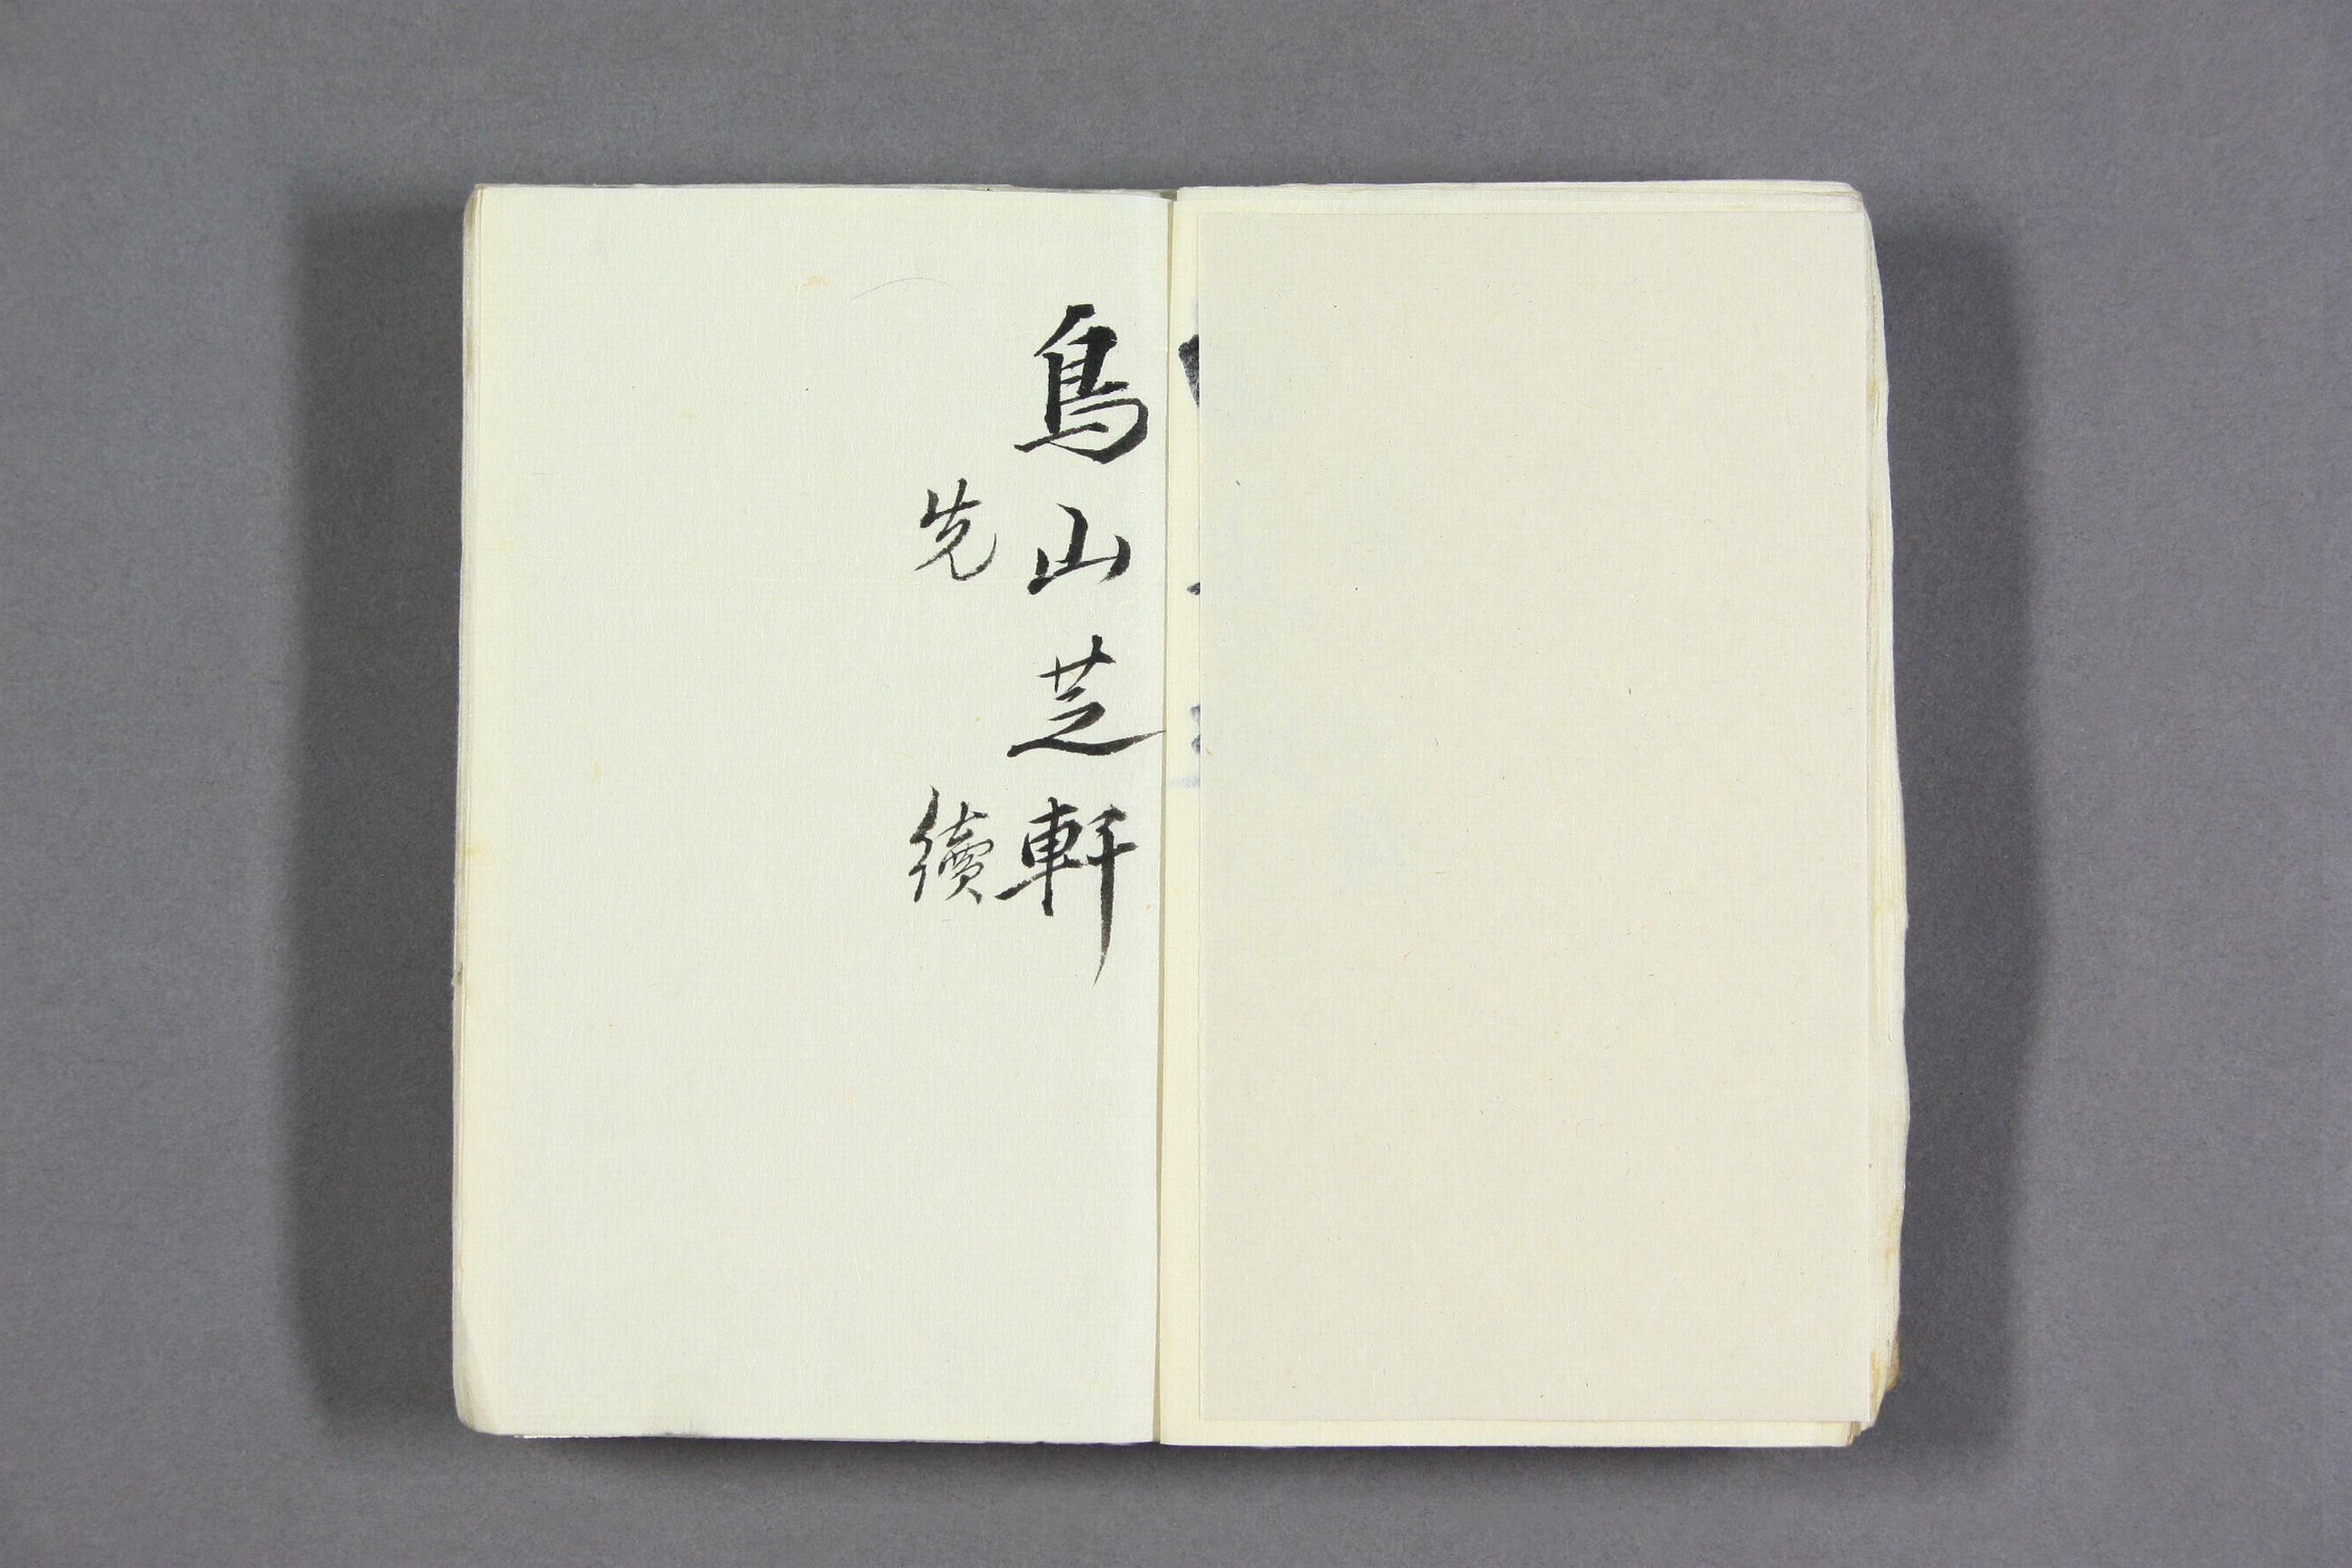 鳥山芝軒
先 續